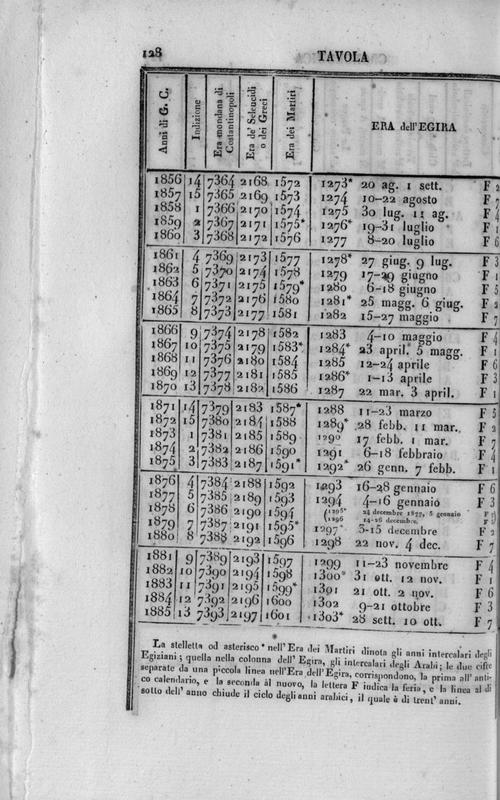 128 TAVOLA
Anni di G. C. Indizione Era mondana di Costantinopoli Era de' Seleucidi o dei Greci Era dei Martiri ERA dell'EGIRA
1856 14 7364 2168 1572 1273* 20 ag. 1 sett. F 2
1857 15 7365 2169 1573 1274 10-22 agosto F 7
1858 1 7366 2170 1574 1275 30 lug. 11 ag. F 4
1859 2 7367 2171 1575* 1276* 19-31 luglio F 1
1860 3 7368 2172 1576 1277 8-20 luglio F 6
1861 4 7369 2173 1577 1278* 27 giug. 9 lug. F 3
1862 5 7370 2174 1578 1279 17-29 giugno F 1
1863 6 7371 2175 1579* 1280 6-18 giugno F 5
1864 7 7372 2176 1580 1281* 25 magg. 6 giug. F 2
1865 8 7373 2177 1581 1282 15-27 maggio F 7
1866 9 7374 2178 1582 1283 4-10 maggio F 4
1867 10 7375 2179 1583* 1284* 23 april. 5 magg. F 1
1868 11 7376 2180 1584 1285 12-24 aprile F 6
1869 12 7377 2181 1585 1286* 1-13 aprile F 3
1870 13 7378 2182 1586 1287 22 mar. 3 april. F 1
1871 14 7379 2183 1587* 1288 11-23 marzo F 5
1872 15 7380 2184 1588 1289* 28 febb. 11 mar. F 2
1873 1 7381 2185 1589 1290 17 febb. 1 mar. F 7
1874 2 7382 2186 1590 1291 6-18 febbraio F 4
1875 3 7383 2187 1591* 1292* 26 genn. 7 febb. F 1
1876 4 7384 2188 1592 1293 16-28 gennaio F 6
1877 5 7385 2189 1593 1294 4-16 gennaio F 3
1878 6 7386 2190 1594 (1295* 24 decembre 1877, 5 gennaio F
(1296 14-26 decembre. F
1879 7 7387 2191 1595* 1297* 3-15 decembre F 2
1880 8 7388 2192 1596 1298 22 nov. 4 dec. F 7
1881 9 7389 2193 1597 1299 11-23 novembre F 4
1882 10 7390 2194 1598 1300* 31 ott. 12 nov. F 1
1883 11 7391 2195 1599* 1301 21 ott. 2 nov. F 6
1884 12 7392 2196 1600 1302 9-21 ottobre F 3
1885 13 7393 2197 1601 1303* 28 sett. 10 ott. F 7
La stelletta od asterisco * nell'Era dei Martiri dinota gli anni intercalari degli
Egiziani; quella nella colonna dell'Egira, gli intercalari degli Arabi; le due cifre
separate da una piccola linea nell'Era dell'Egira, corrispondono, la prima all'anti-
co calendario, e la seconda al nuovo, la lettera F indica la feria, e la linea al di
sotto dell'anno chiude il ciclo degli anni arabici, il quale è di trent'anni.